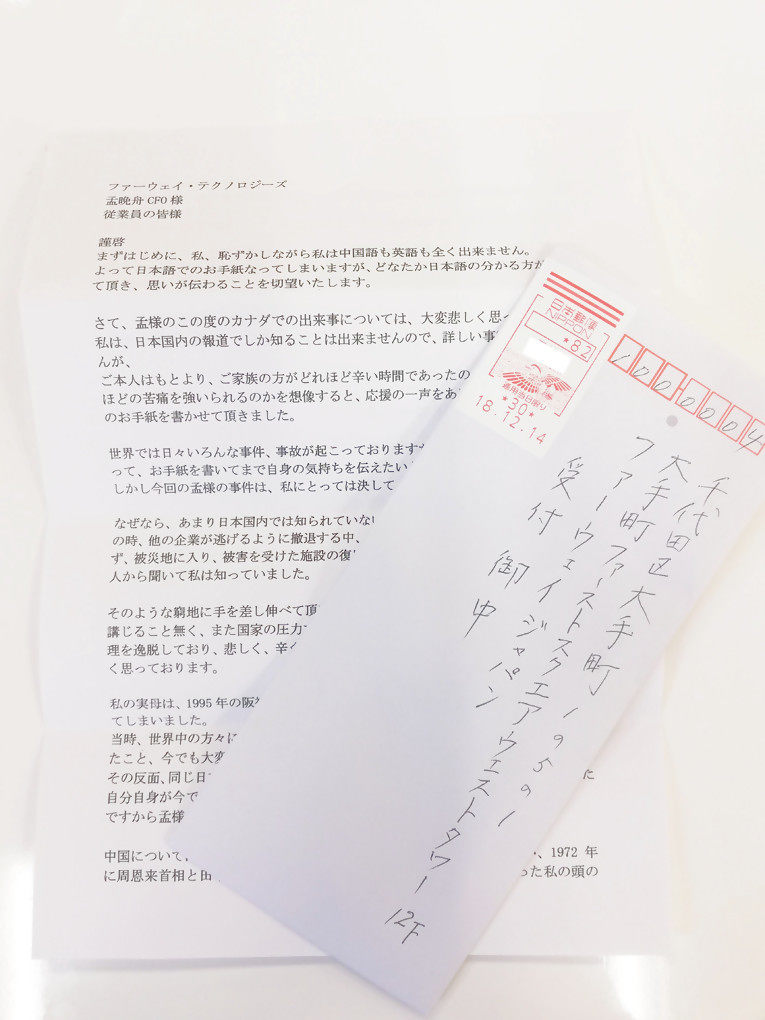 ファーウェイ・テクノロジーズ
孟晩舟 CFO 様
従業員の皆様
謹啓
まずはじめに、私、恥ずかしながら私は中国語も英語も全く出来ません。
よって日本語でのお手紙なってしまいますが、どなたか日本語の分かる方が
て頂き、思いが伝わることを切望いたします。
さて、孟様のこの度のカナダでの出来事については、大変悲しく思
私は、日本国内の報道でしか知ることは出来ませんので、詳しい事
んが、
ご本人はもとより、ご家族の方がどれほど辛い時間であったの
ほどの苦痛を強いられるのかを想像すると、応援の一声をあ
のお手紙を書かせて頂きました。
世界では日々いろんな事件、事故が起こっておりますが
って、お手紙を書いてまで自身の気持ちを伝えたい
しかし今回の孟様の事件は、私にとっては決して
なぜなら、あまり日本国内では知られていない
の時、他の企業が逃げるように撤退する中、
ず、被災地に入り、被害を受けた施設の復
人から聞いて私は知っていました。
そのような窮地に手を差し伸べて頂
講じること無く、また国家の圧力
理を逸脱しており、悲しく、辛く
く思っております。
私の実母は、1995 年の阪
てしまいました。
当時、世界中の方々に
たこと、今でも大変
に
その反面、同じ日
自分自身が今で
ですから孟様
中国について
、1972 年
に周恩来首相と田
った私の頭の
日本郵便
NIPPON
*82
*30*
18.12.14
1000004
千代田区大手町1951
大手町ファーストスクエアウエストタワー 12F
ファーウェイジャパン
受付 御中